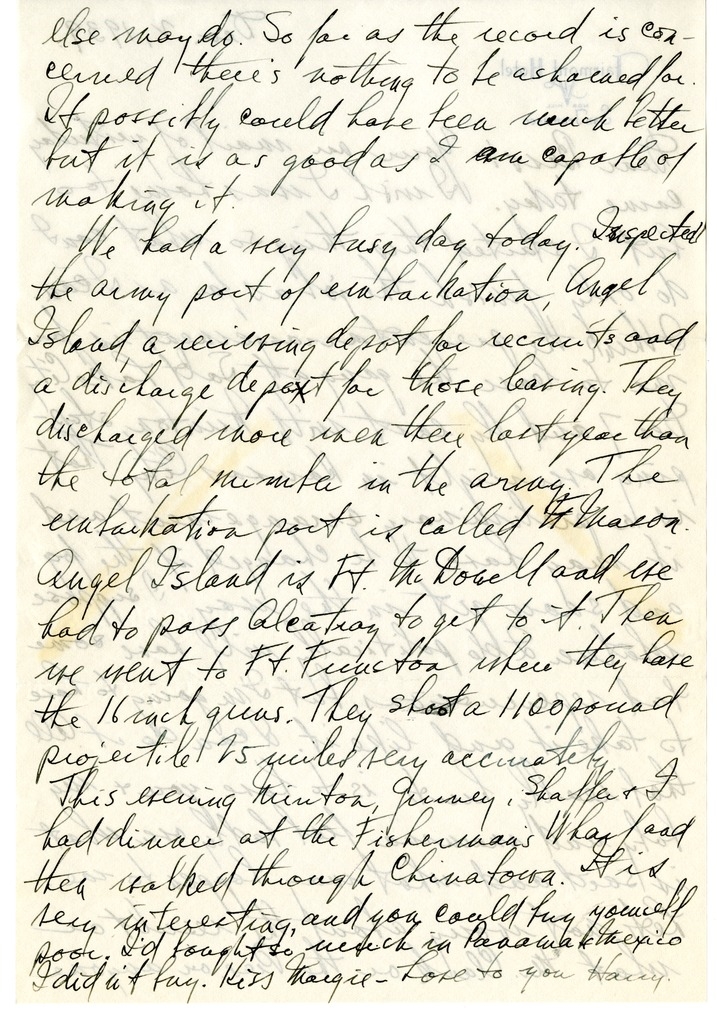 else may do. So far as the record is con-
cerned there's nothing to be ashamed for.
It possibly could have been much better
but it is as good as I am capable of
making it.
We had a very busy day today. Inspected
the army port of embarkation, Angel
Island, a receiving depot for recruits and
a discharge depot for those leaving. They
discharged more men there last year than
the total number in the army. The
embarkation port is called Ft Mason.
Angel Island is Ft. McDowell and we
had to pass Alcatraz to get to it. Then
we went to Ft. Funston where they have
the 16 inch guns. They shoot a 1100 pound
projectile 25 miles very accurately
This evening Minton, Gurney, Shaffer & I
had dinner at the Fisherman's Wharf and
then walked through Chinatown. It is
very interesting, and you could buy yourself
poor. I'd bought so much in Panama & Mexico
I didn't buy. Kiss Margie - Love to you Harry.